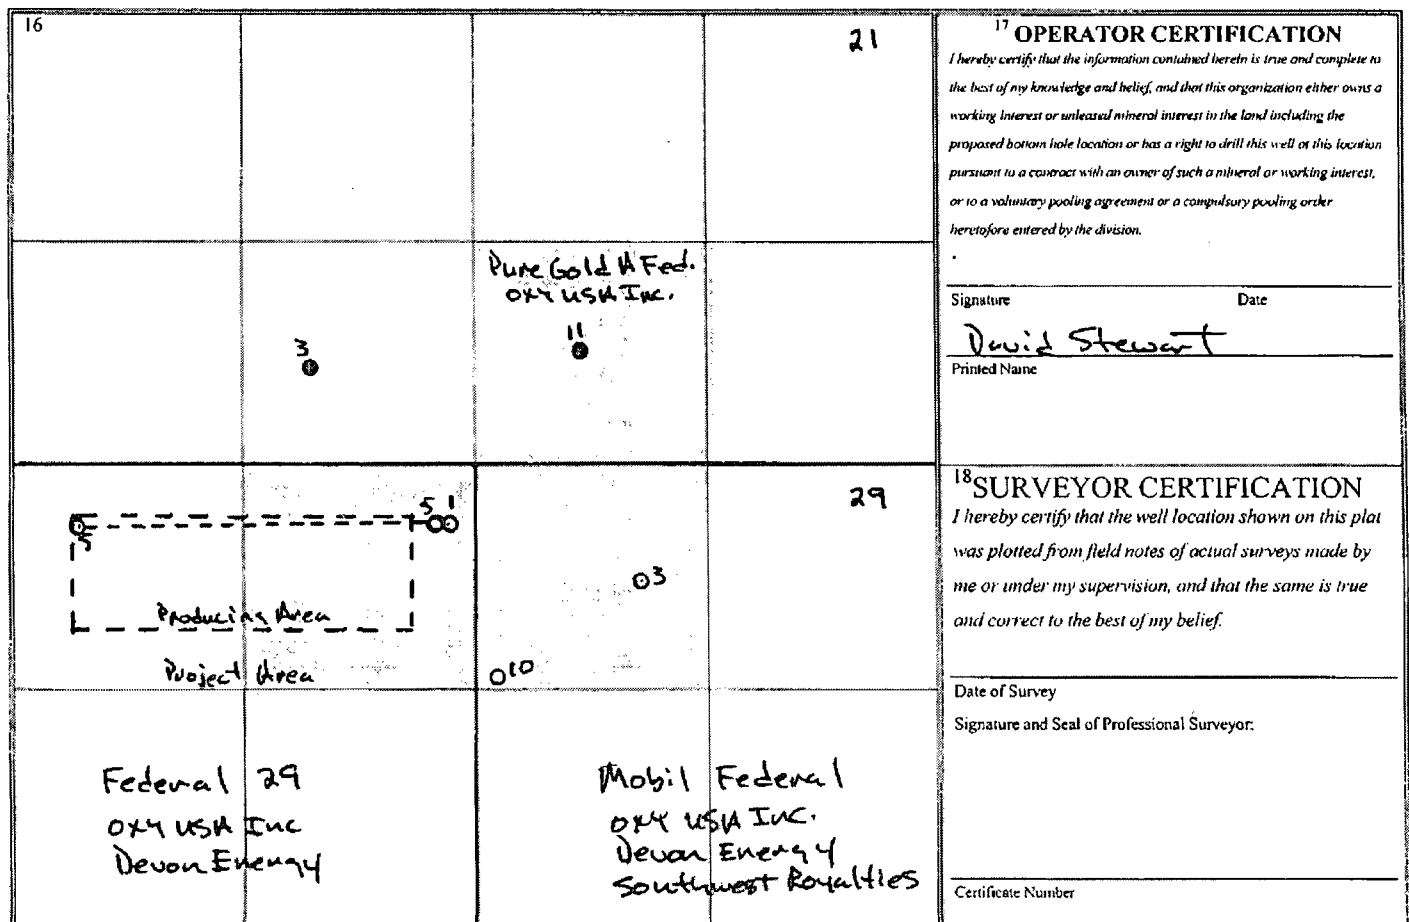 16
21
Pure Gold A Fed.
OXY USA Inc.
11
3
29
5 1
5
3
Producing Area
Project Area
10
Federal 29
OXY USA Inc
Devon Energy
Mobil Federal
OXY USA Inc.
Devon Energy
Southwest Royalties
17 OPERATOR CERTIFICATION
I hereby certify that the information contained herein is true and complete to
the best of my knowledge and belief, and that this organization either owns a
working interest or unleased mineral interest in the land including the
proposed bottom hole location or has a right to drill this well at this location
pursuant to a contract with an owner of such a mineral or working interest,
or to a voluntary pooling agreement or a compulsory pooling order
heretofore entered by the division.
Signature Date
David Stewart
Printed Name
18 SURVEYOR CERTIFICATION
I hereby certify that the well location shown on this plat
was plotted from field notes of actual surveys made by
me or under my supervision, and that the same is true
and correct to the best of my belief.
Date of Survey
Signature and Seal of Professional Surveyor:
Certificate Number